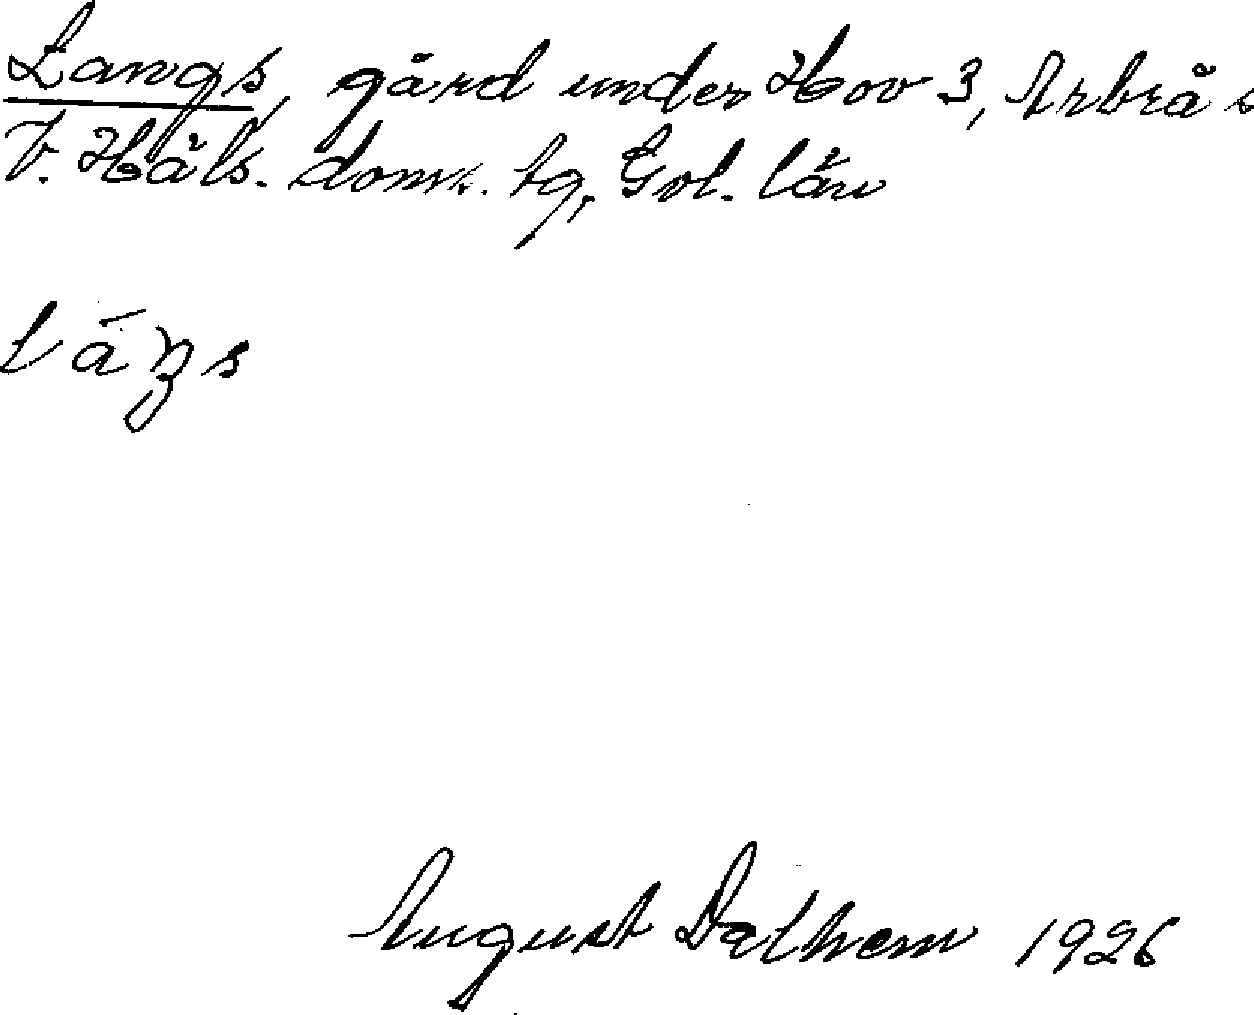 Langs, gård under Hov 3, Arbrå s
V. Häls. doms. tg, Gvl. län
láŋs
August Dalhem 1926